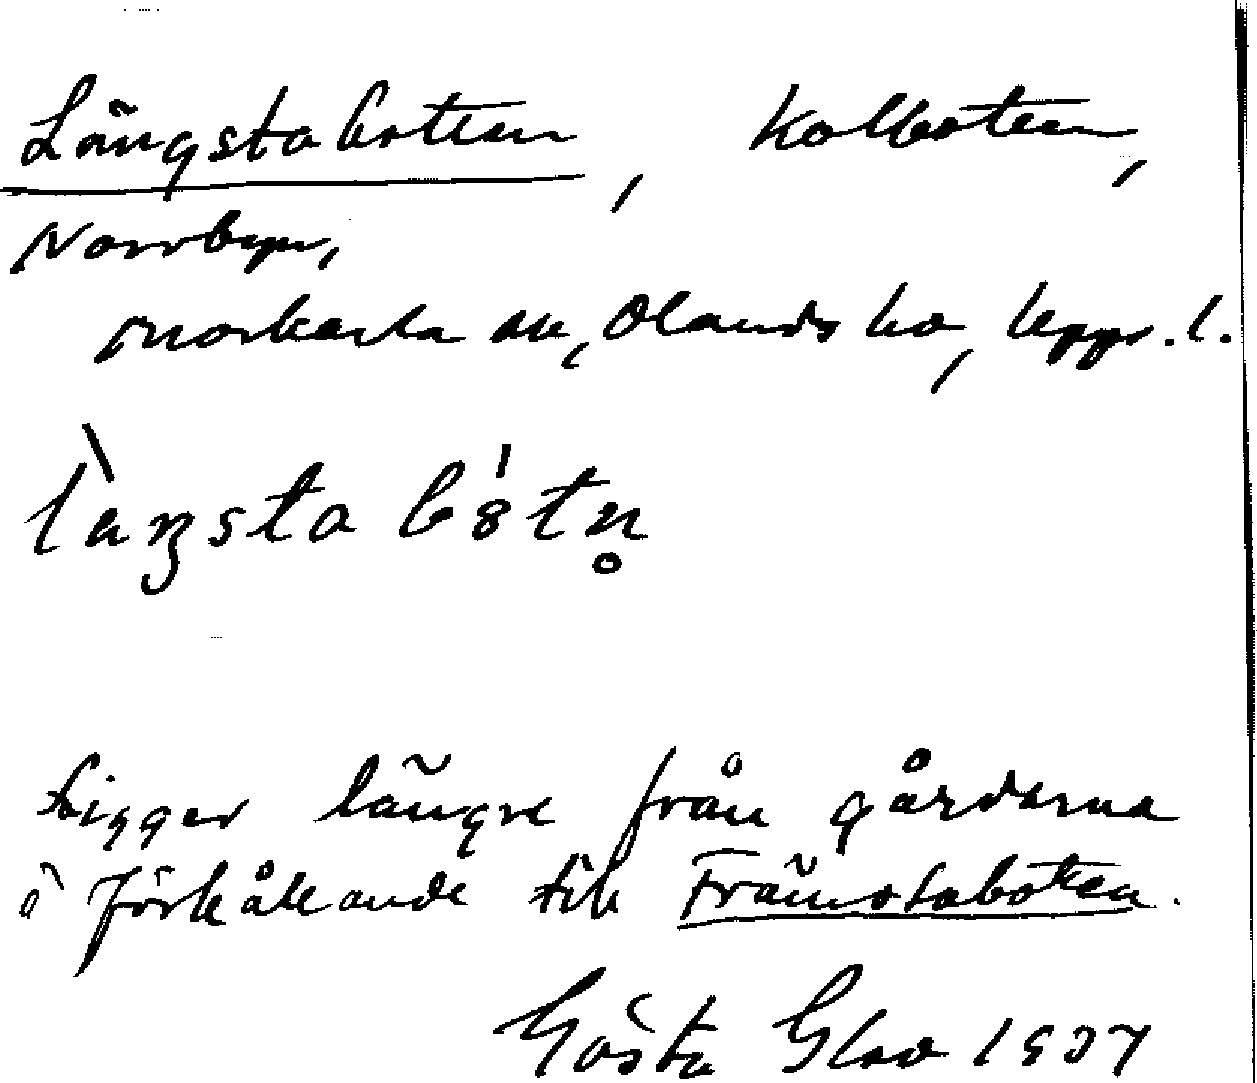 Längstabotten, Kolbotten,
Norrbyn,
Morkarla sn, Olands hd, Upps. l.
Ligger längre från gårdarna
i förhållande till Främstaboten.
Gösta Glad 1937